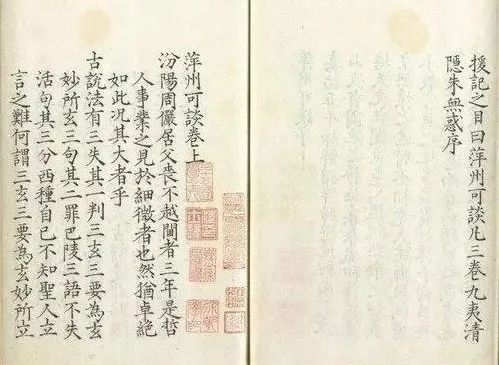 援記之目曰萍州可談凡三卷九夷清
隱朱無惑序
萍州可談卷上
汾陽周儼居父喪不越閫者三年是哲
人事業之見於細微者也然猶卓絕
如此况其大者乎
古說法有三失其一判三玄三要為玄
妙所玄三句其二罪巴陵三語不失
活句其三分西種自己不知聖人立
言之難何謂三玄三要為玄妙所立